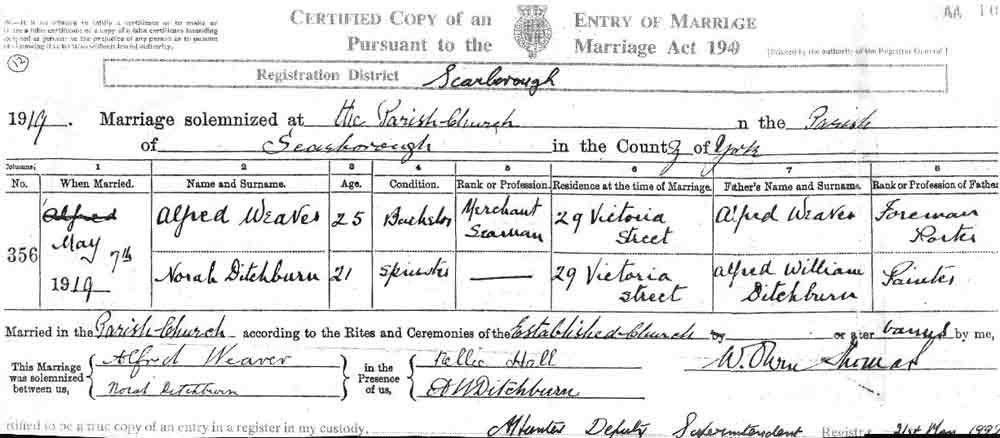 CERTIFIED COPY of an ENTRY OF MARRIAGE
Pursuant to the Marriage Act 1949
[Printed by the authority of the Registrar General]
12
Registration District Scarborough
1919. Marriage solemnized at the Parish Church n the Parish
of Scarborough in the County of York
Columns:— 1 2 3 4 5 6 7 8
No. When Married. Name and Surname. Age. Condition. Rank or Profession. Residence at the time of Marriage. Father's Name and Surname. Rank or Profession of Father
356 Alfred May 7th 1919 Alfred Weaver 25 Bachelor Merchant Seaman 29 Victoria Street Alfred Weaver Foreman Porter
Norah Ditchburn 21 Spinster — 29 Victoria Street Alfred William Ditchburn Painter
Married in the Parish Church according to the Rites and Ceremonies of the Established Church by or after banns by me,
This Marriage was solemnized between us, Alfred Weaver Norah Ditchburn in the Presence of us, Hall AW Ditchburn W. Owen Thomas
rtified to be a true copy of an entry in a register in my custody.
Deputy Superintendent Registr